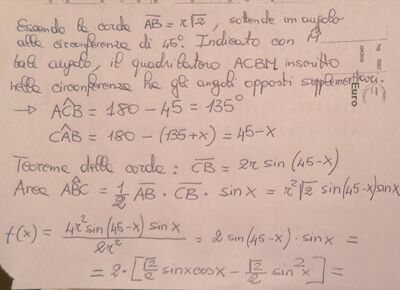 Essendo la corda AB = r√2, sottende un angolo
alla circonferenza di 45°. Indicato con M̂
tale angolo, il quadrilatero ACBM inscritto
nella circonferenza ha gli angoli opposti supplementari.
→ AĈB = 180 - 45 = 135°
CÂB = 180 - (135+x) = 45-x
Teorema della corda: CB = 2r sin (45-x)
Area AB̂C = 1/2 AB · CB · sin x = r²√2 sin(45-x) sin x
f(x) = 4r² sin(45-x) sin x / 2r² = 2 sin(45-x) · sin x =
= 2 · [√2/2 sin x cos x - √2/2 sin² x] =
Euro